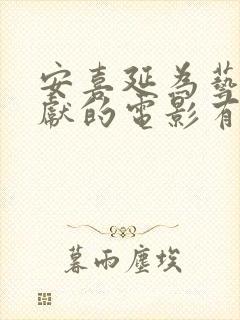 安喜延為藝
獻的電影有
暮雨塵埃